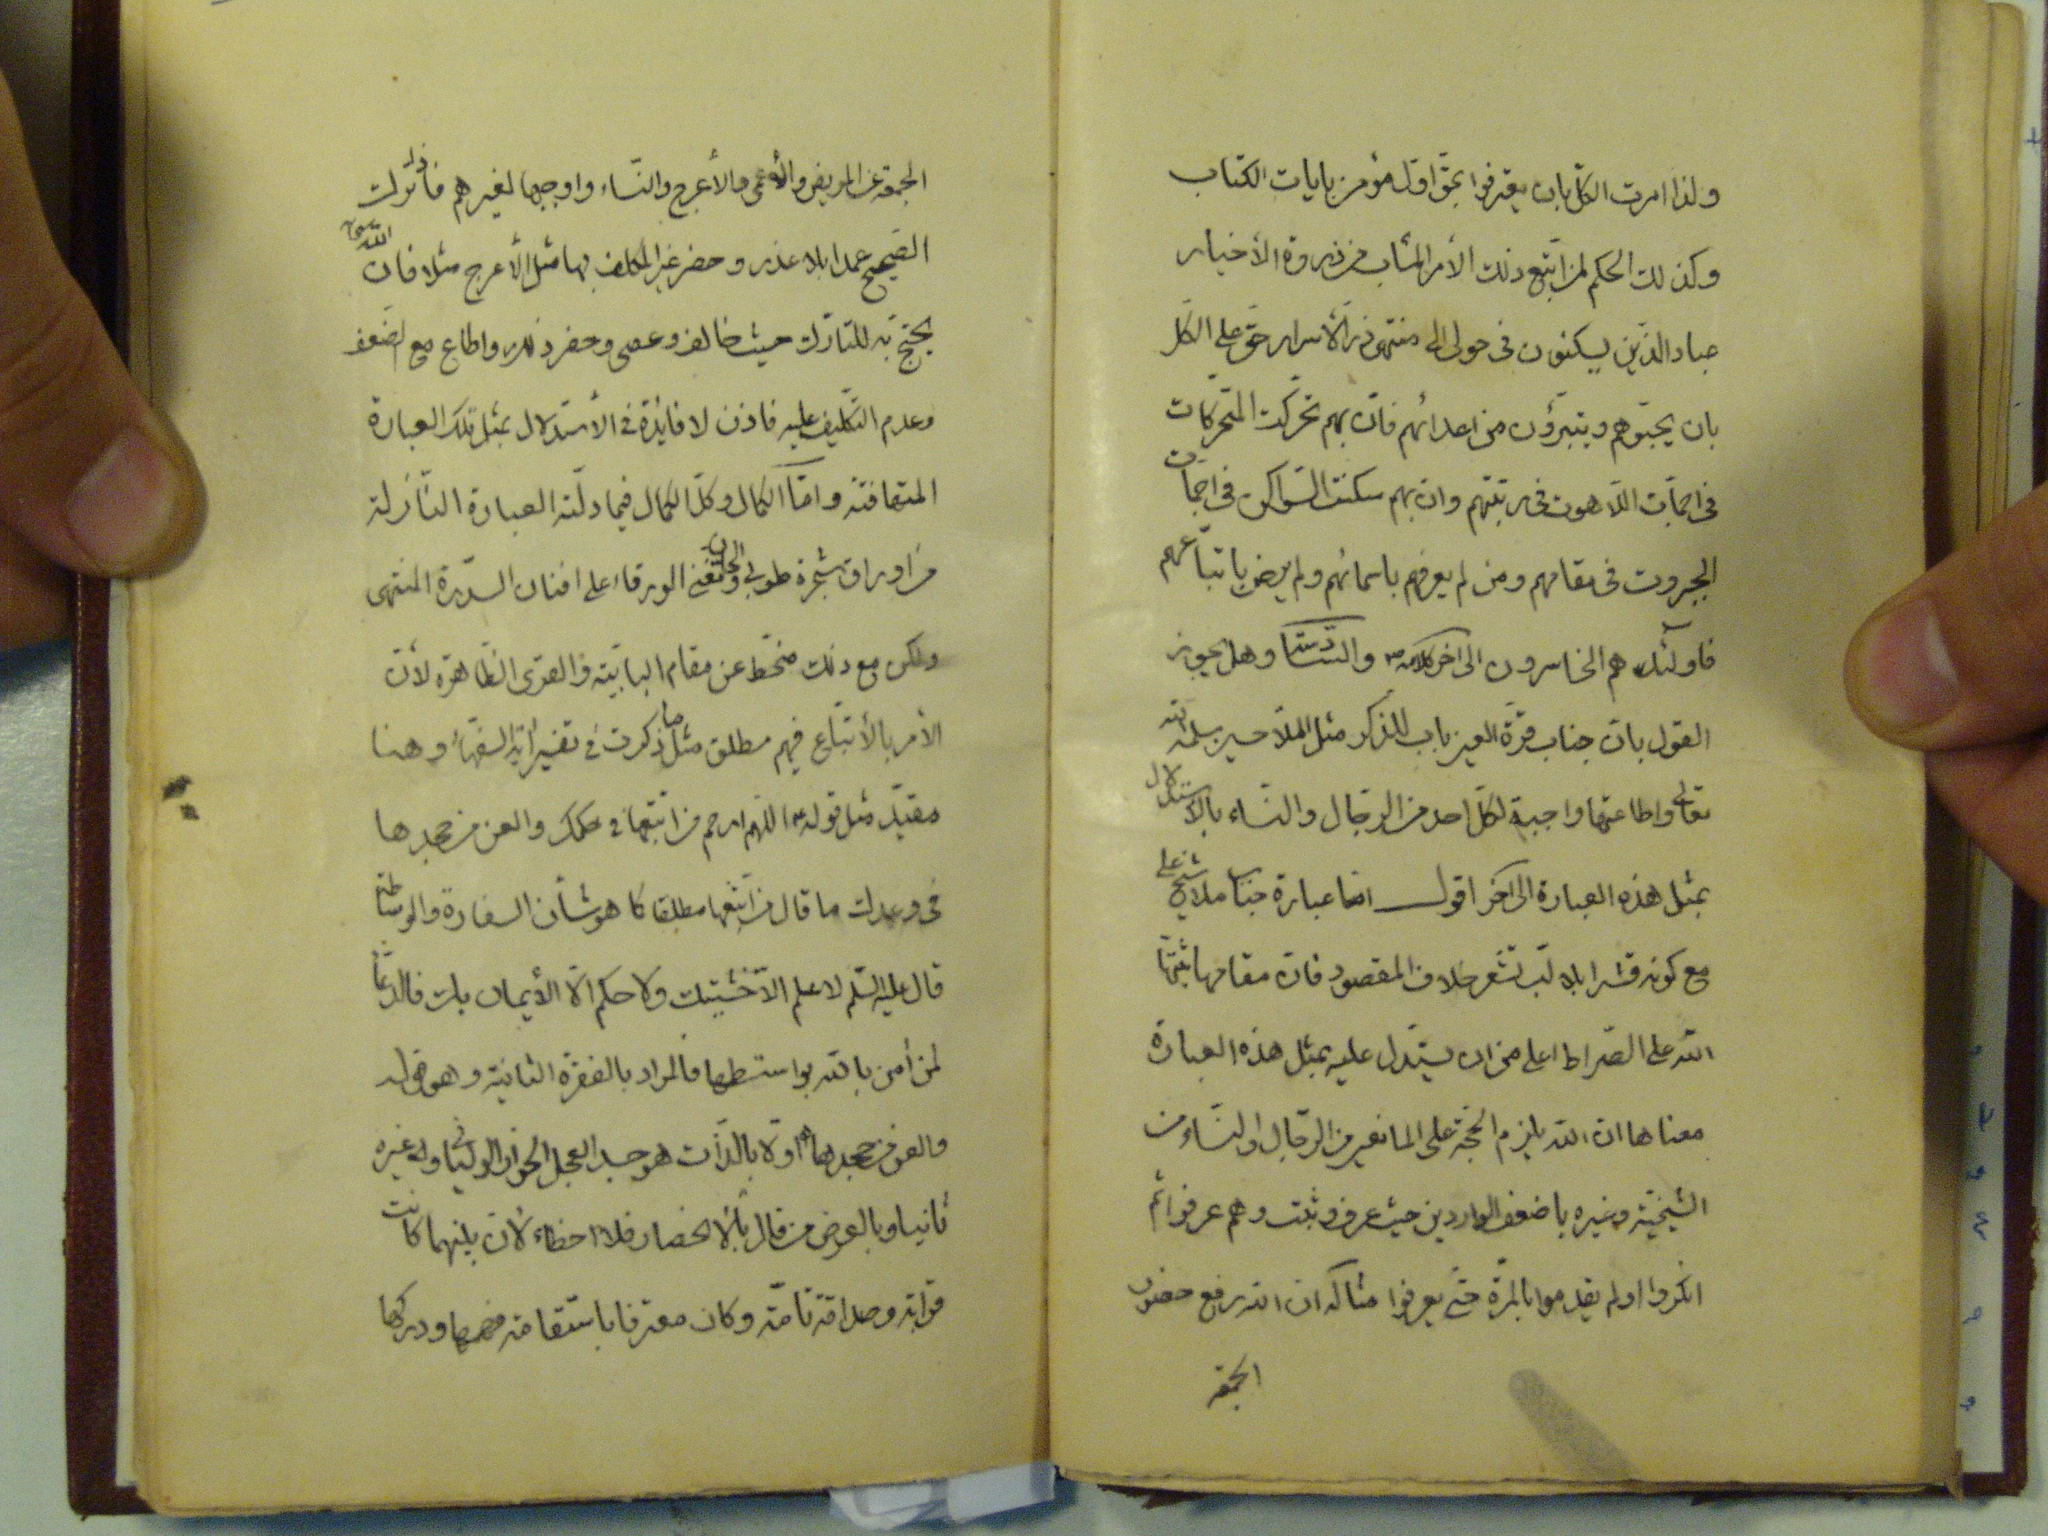 ولذا امرت الكل بان يعترفوا بحق اول مؤمن بايات الكتاب
وكذلك الحكم لمن اتبع ذلك الأمر المثاب من ذروة الأخيار
عباد الذين يسكنون في حولى الى منتهى ذر الأسرار حق على الكل
بان يحبوهم ويتبرؤن من اعدائهم فان بهم تحركت المتحركات
في اجمات اللاهوت في رتبتهم وان بهم سكنت السواكن في اجمات
الجبروت في مقامهم ومن لم يعرفهم باسمائهم ولم يرض باتباعهم
فاولئك هم الخاسرون الى اخر كلامه وهل يجوز
القول بان جناب قرة العين باب للذكر مثل الملا حسين سلمه الله
تعالى واطاعتها واجبة لكل احد من الرجال والنساء بالاستدلال
بمثل هذه العبارة الى اخر اقول اما عبارة جناب ملا شيخ على
مع كونه قشرا بلا لب تشعر خلاف المقصود فان مقامها ثبتها
الله على الصراط اعلى من ان يستدل عليه بمثل هذه العبارة
معناها ان الله يلزم الحجة على المانعين من الرجال والنساء من
الشيخية وغيره باضعف الواردين حيث عرف وثبت وهم عرفوا ثم
انكروا او لم يقدموا بالمرة حتى يعرفوا مثاله ان الله رفع حضور
الجمعة
الجمعة عن المريض والأعمى والأعرج والنساء واوجبها لغيرهم فاذا ترك
الصحيح عمدا بلا عذر وحضر غير المكلف بها مثل الأعرج مثلا فان الله سبحانه
يحتج به للتارك حيث خالف وعصى وحضر ذلك واطاع مع ضعف
وعدم التكليف عليه فاذن لا فايدة في الأستدلال بمثل تلك العبارة
المتهافتة واما الكمال وكل الكمال فيما دلته العبارة النازلة
من اوراق شجرة طوبى والحان تغنى الورقاء على افنان السدرة المنتهى
ولكن مع ذلك منحط عن مقام البابية والقرى الظاهرة لأن
الأمر بالأتباع فيهم مطلق مثل ما ذكرت في تفسير اية السفهاء وهنا
مقيد مثل قوله اللهم ارحم من اتبعها في حكمك والعن من جحدها
في وعدك ما قال من اتبعها مطلقا كما هو شأن السفارة والوساطة
قال عليه السلم لا علم الا خشيتك ولا حكم الا الأيمان بك فالدعاء
لمن امن بالله بواسطتها فالمراد بالفقرة الثانية وهو قوله
والعن من جحدها اولا بالذات هو جسد العجل الخوار الوليانى وله غيره
ثانيا وبالعرض من قال بالأنحصار فلا اخطاء لأن بينهما كانت
قرابة وصداقة تامة وكان معترفا باستقامة فهمها ودركها